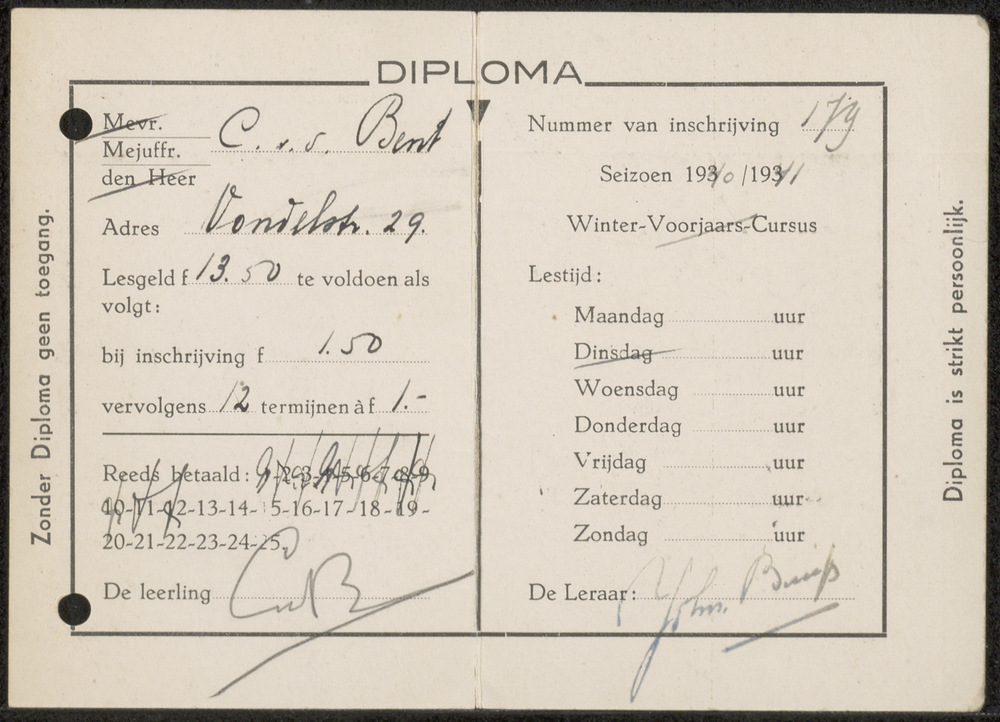 DIPLOMA
Zonder Diploma geen toegang.
Mevr.
Mejuffr. C. v. d. Bent
den Heer
Adres Vondelstr. 29.
Lesgeld f 13.50 te voldoen als
volgt:
bij inschrijving f 1.50
vervolgens 12 termijnen à f 1.-
Reeds betaald: 1-2-3-4-5-6-7-8-9
10-11-12-13-14-15-16-17-18-19-
20-21-22-23-24-25.
De leerling CvB
Nummer van inschrijving 179
Seizoen 1940/1941
Winter-Voorjaars-Cursus
Lestijd:
Maandag uur
Dinsdag uur
Woensdag uur
Donderdag uur
Vrijdag uur
Zaterdag uur
Zondag uur
De Leraar: Joh.
Diploma is strikt persoonlijk.